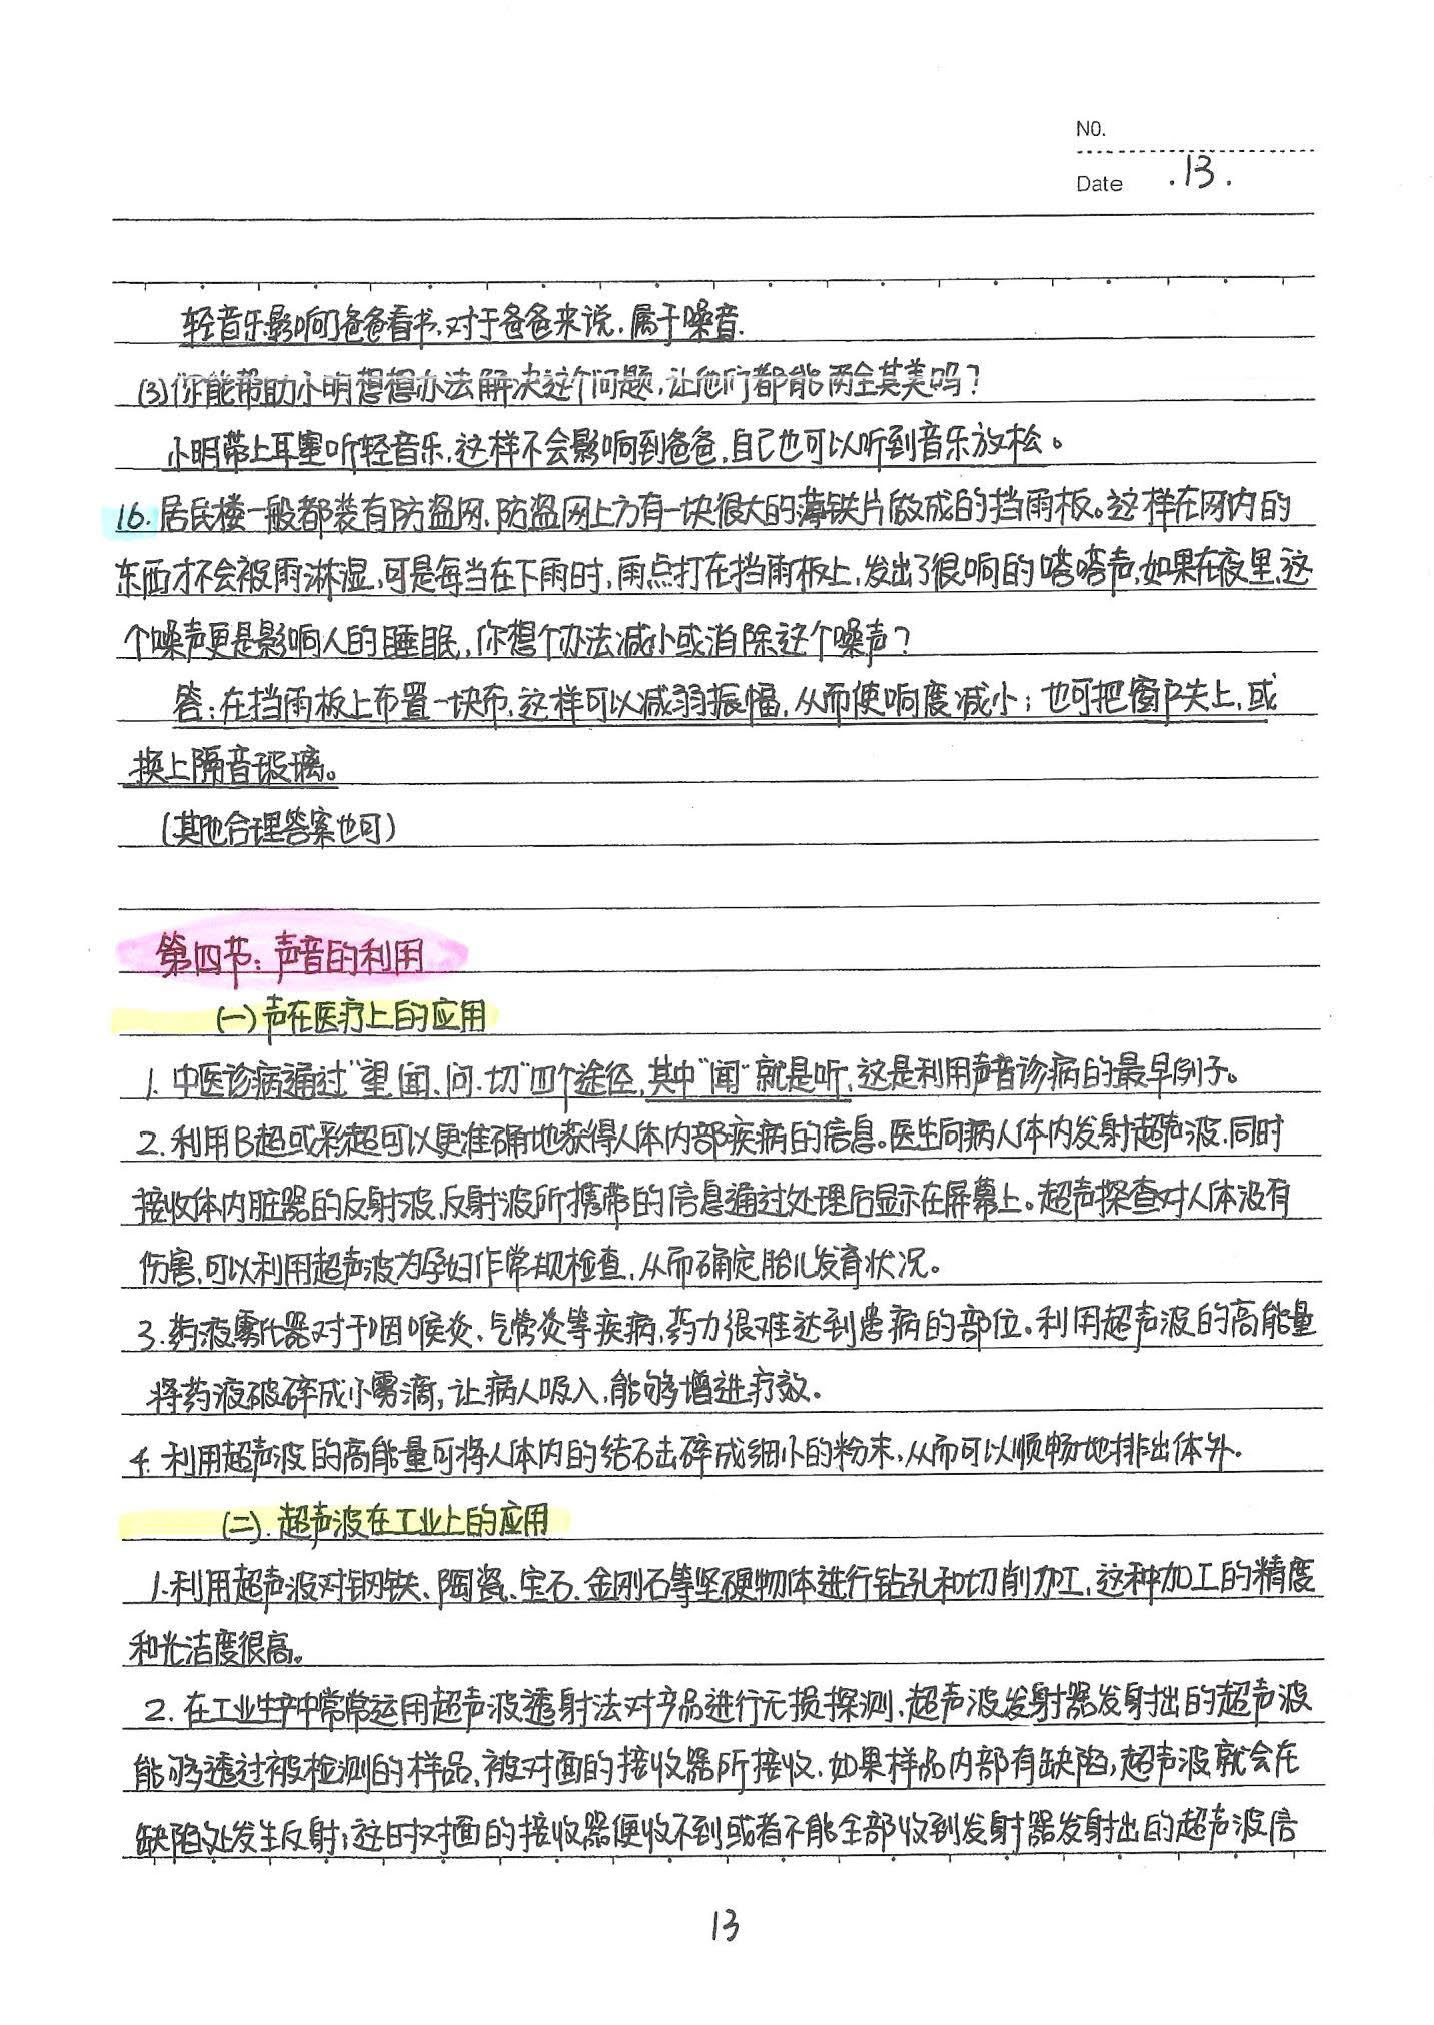 NO.
Date .13.
轻音乐影响了爸爸看书,对于爸爸来说,属于噪音.
(3)你能帮助小明想想办法解决这个问题,让他们都能两全其美吗?
小明带上耳塞听轻音乐,这样不会影响到爸爸,自己也可以听到音乐放松。
16.居民楼一般都装有防盗网,防盗网上方有一块很大的薄铁片做成的挡雨板。这样在网内的
东西才不会被雨淋湿,可是每当在下雨时,雨点打在挡雨板上,发出了很响的嗒嗒声,如果在夜里,这
个噪声更是影响人的睡眠,你想个办法减小或消除这个噪声?
答:在挡雨板上布置一块布,这样可以减弱振幅,从而使响度减小;也可把窗户关上,或
换上隔音玻璃。
(其他合理答案也可)
第四节:声音的利用
(一)声在医疗上的应用
1.中医诊病通过"望、闻、问、切"四个途径,其中"闻"就是听,这是利用声音诊病的最早例子。
2.利用B超或彩超可以更准确地获得人体内部疾病的信息。医生向病人体内发射超声波,同时
接收体内脏器的反射波,反射波所携带的信息通过处理后显示在屏幕上。超声探查对人体没有
伤害,可以利用超声波为孕妇作常规检查,从而确定胎儿发育状况。
3.药液雾化器对于咽喉炎、气管炎等疾病,药力很难达到患病的部位。利用超声波的高能量
将药液破碎成小雾滴,让病人吸入,能够增进疗效.
4.利用超声波的高能量可将人体内的结石击碎成细小的粉末,从而可以顺畅地排出体外.
(二).超声波在工业上的应用
1.利用超声波对钢铁、陶瓷、宝石、金刚石等坚硬物体进行钻孔和切削加工,这种加工的精度
和光洁度很高。
2.在工业生产中常常运用超声波透射法对产品进行无损探测.超声波发射器发射出的超声波
能够透过被检测的样品,被对面的接收器所接收.如果样品内部有缺陷,超声波就会在
缺陷处发生反射,这时对面的接收器便收不到或者不能全部收到发射器发射出的超声波信
13